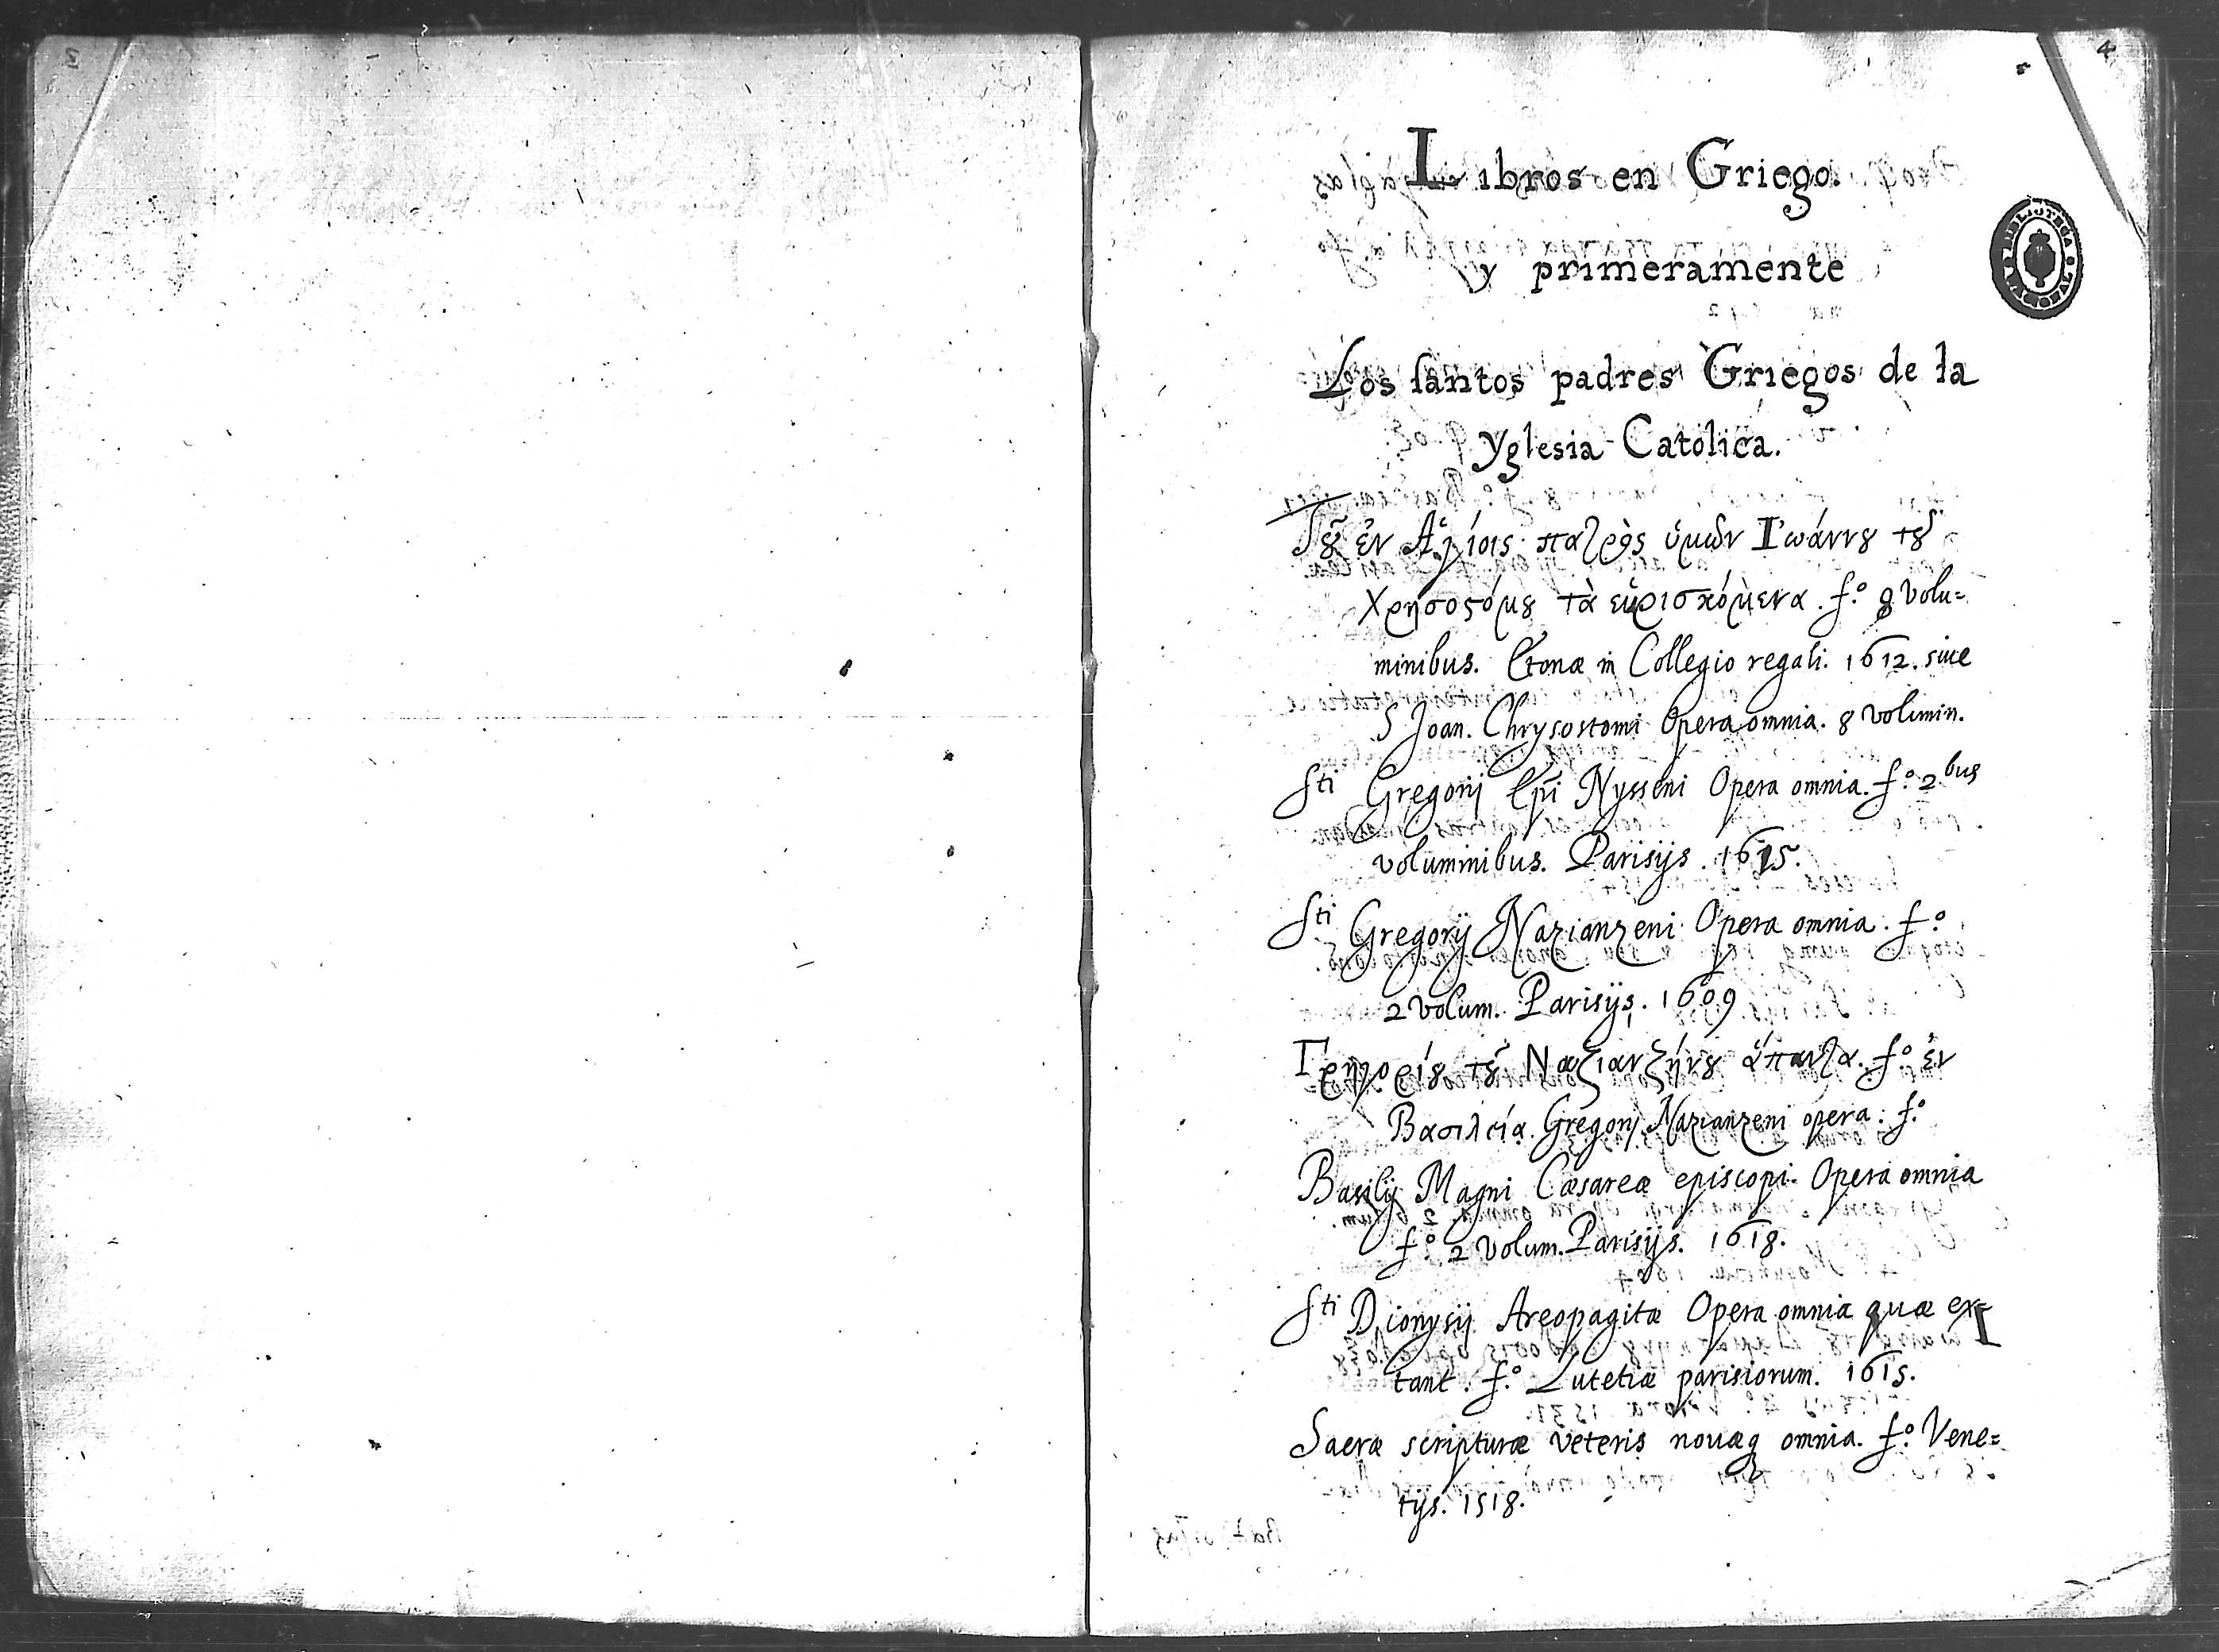 4
Libros en Griego.
y primeramente
Los santos padres Griegos de la
Yglesia Catolica.
Τȣ͂ ἐν Ἁγίοις πατρὸς ὑμῶν Ἰωάννȣ τȣ͂
Χρησοϛόμȣ τὰ εὑρισκόμενα. fº. 8 Volu=
minibus. Etonæ in Collegio regali. 1612. siue
S Joan. Chrysostomi Opera omnia. 8 volumin.
Sti Gregorij Epĩ Nysseni Opera omnia. fº. 2bus
voluminibus. Parisijs. 1615.
Sti Gregorij Nazianzeni Opera omnia. fº.
2 Volum. Parisijs. 1609
Γρηγορίȣ τȣ͂ Ναζιανζήνȣ ἅπαντα. fº. ἐν
Βασιλεία. Gregorij Nazianzeni opera. fº.
Basilij Magni Cæsareæ episcopi. Opera omnia
fº. 2 Volum. Parisijs. 1618.
Sti Dionysij Areopagitæ Opera omnia quæ ex=
tant. fº. Lutetiæ parisiorum. 1615.
Sacræ scripturæ veteris nouæq omnia. fº. Vene=
tijs. 1518.